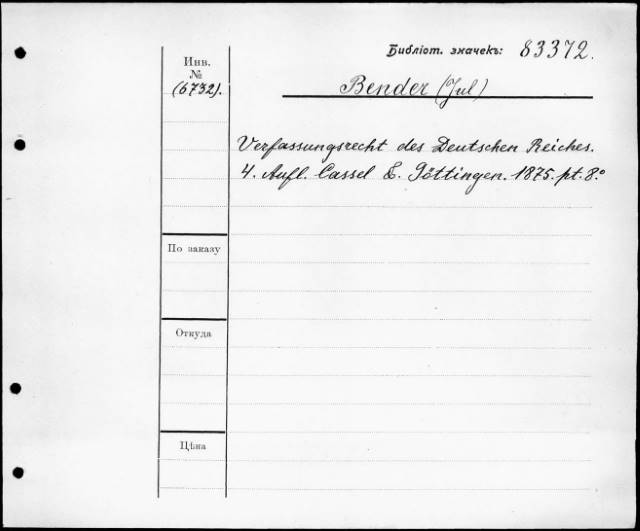 Библіот. значекъ: 83372.
Инв.
№
(6732).
Bender (Jul)
Verfassungsrecht des Deutschen Reiches.
4. Aufl. Cassel & Göttingen. 1875. pt. 8.º
По заказу
Откуда
Цѣна